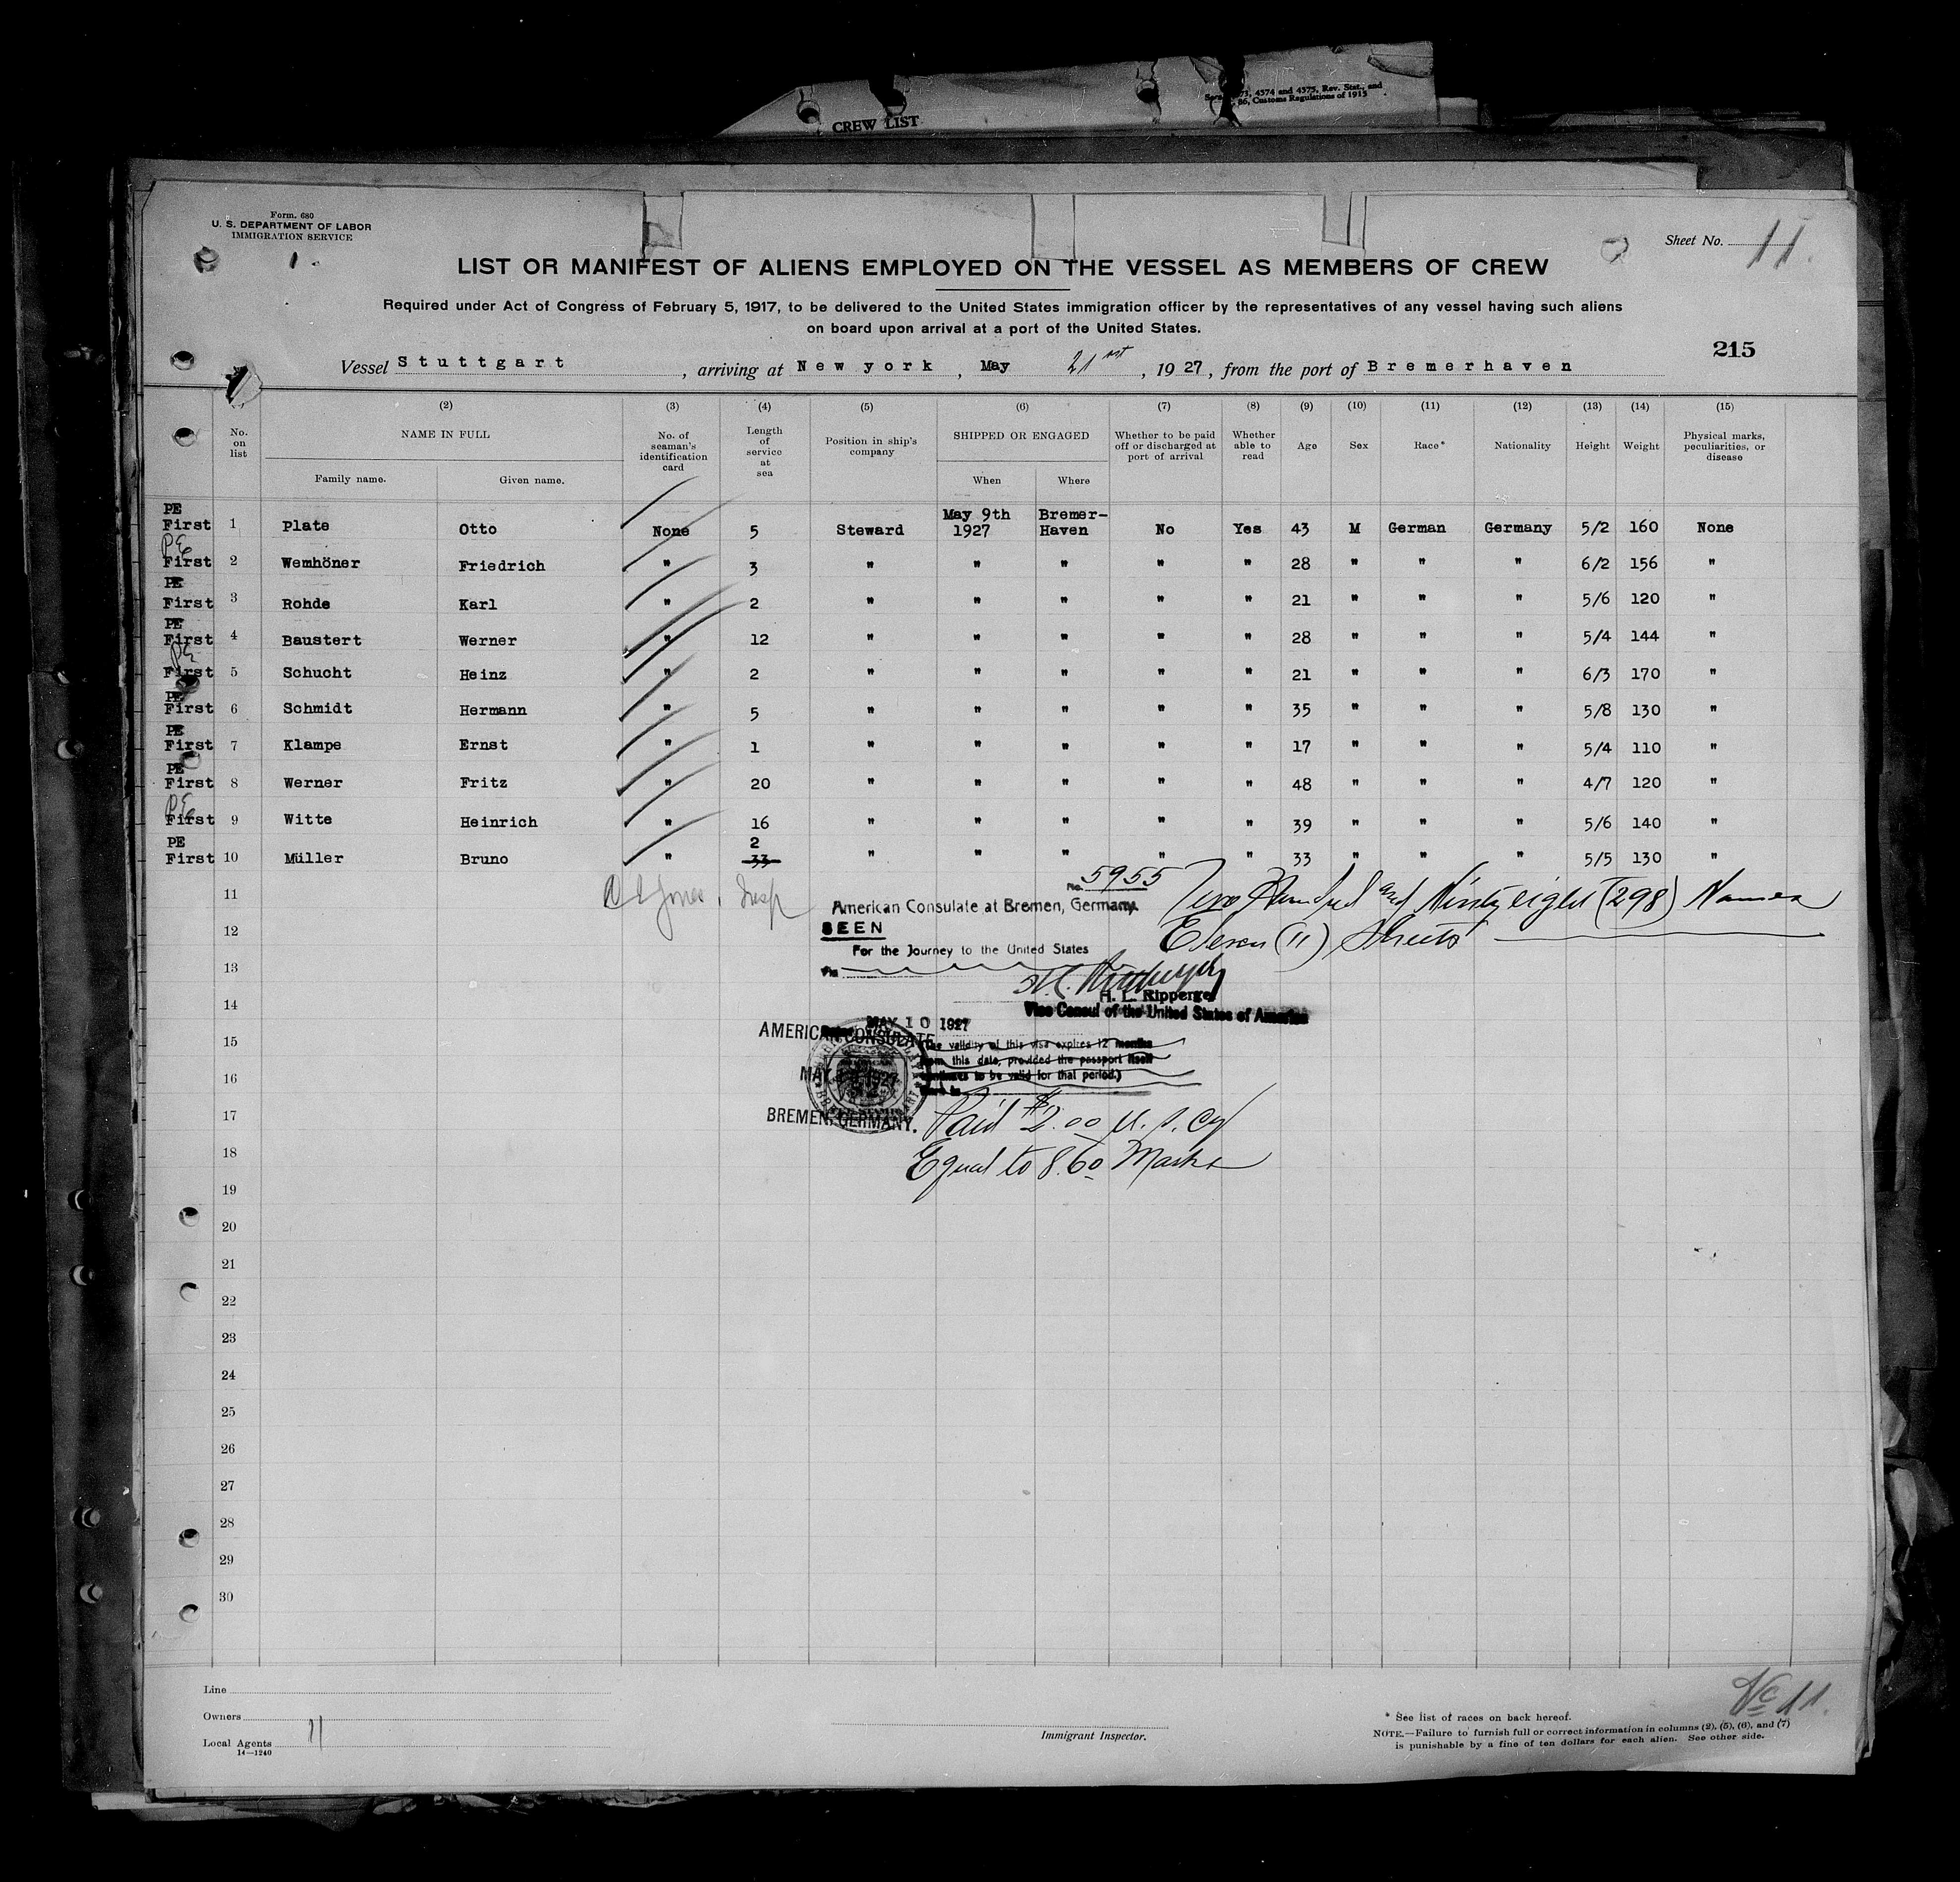 CREW LIST
4374 and 4375, Rev. Stat., and
86, Customs Regulations of 1915
Form. 680
U. S. DEPARTMENT OF LABOR
IMMIGRATION SERVICE
1.
Sheet No. 11.
LIST OR MANIFEST OF ALIENS EMPLOYED ON THE VESSEL AS MEMBERS OF CREW
Required under Act of Congress of February 5, 1917, to be delivered to the United States immigration officer by the representatives of any vessel having such aliens
on board upon arrival at a port of the United States.
215
Vessel Stuttgart, arriving at New york, May 21st, 1927, from the port of Bremerhaven
(2) (3) (4) (5) (6) (7) (8) (9) (10) (11) (12) (13) (14) (15)
No. on list NAME IN FULL No. of seaman's identification card Length of service at sea Position in ship's company SHIPPED OR ENGAGED Whether to be paid off or discharged at port of arrival Whether able to read Age Sex Race* Nationality Height Weight Physical marks, peculiarities, or disease
Family name. Given name. When Where
PE First 1 Plate Otto None 5 Steward May 9th 1927 Bremer-Haven No Yes 43 M German Germany 5/2 160 None
PE First 2 Wemhöner Friedrich " 3 " " " " " 28 " " " 6/2 156 "
PE First 3 Rohde Karl " 2 " " " " " 21 " " " 5/6 120 "
PE First 4 Baustert Werner " 12 " " " " " 28 " " " 5/4 144 "
PE First 5 Schucht Heinz " 2 " " " " " 21 " " " 6/3 170 "
PE First 6 Schmidt Hermann " 5 " " " " " 35 " " " 5/8 130 "
PE First 7 Klampe Ernst " 1 " " " " " 17 " " " 5/4 110 "
PE First 8 Werner Fritz " 20 " " " " " 48 " " " 4/7 120 "
PE First 9 Witte Heinrich " 16 " " " " " 39 " " " 5/6 140 "
PE First 10 Müller Bruno " 2 33 " " " " " 33 " " " 5/5 130 "
11
Jones, Insp
No. 5955
American Consulate at Bremen, Germany.
Two Hundred and Ninty eight (298) Names
12
SEEN
Eleven (11) Sheets
For the Journey to the United States
13
Via
14
H. L. Ripperger
Vice Consul of the United States of America
MAY 10 1927
15
AMERICAN CONSULATE
(The validity of this visa expires 12 months
from this date, provided the passport itself
16
continues to be valid for that period.)
MAY 1927
17
BREMEN, GERMANY.
Paid $2.00 U.S. Cy
18
Equal to 8.60 Marks
19
20
21
22
23
24
25
26
27
28
29
30
Line
Owners
Local Agents 11
14—1240
Immigrant Inspector.
No 11.
* See list of races on back hereof.
NOTE.—Failure to furnish full or correct information in columns (2), (5), (6), and (7)
is punishable by a fine of ten dollars for each alien. See other side.